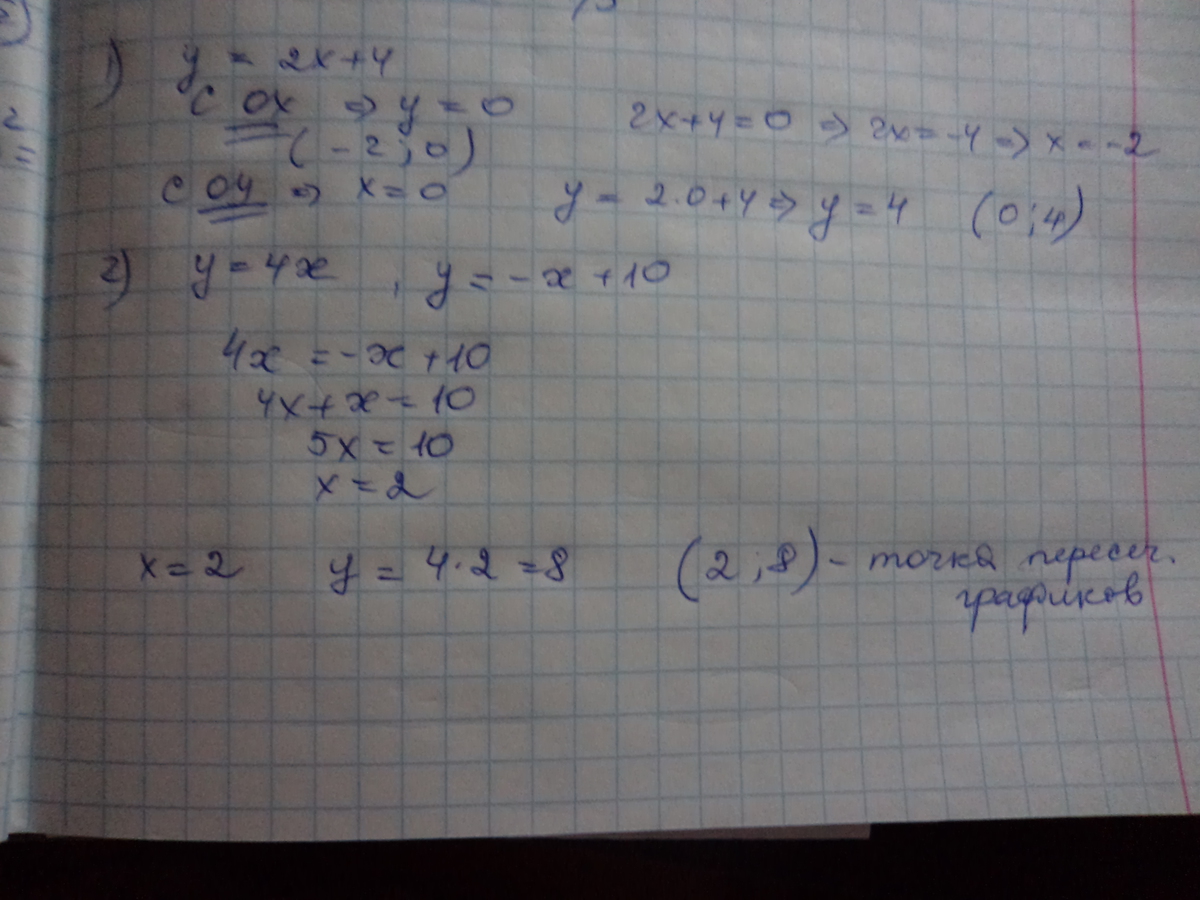 1) y = 2x+4
с OX ⇒ y = 0 2x+4=0 ⇒ 2x=-4 ⇒ x=-2
(-2;0)
с OY ⇒ x=0 y = 2·0+4 ⇒ y=4 (0;4)
2) y=4x , y=-x+10
4x=-x+10
4x+x=10
5x=10
x=2
x=2 y=4·2=8 (2;8) - точка пересеч.
графиков